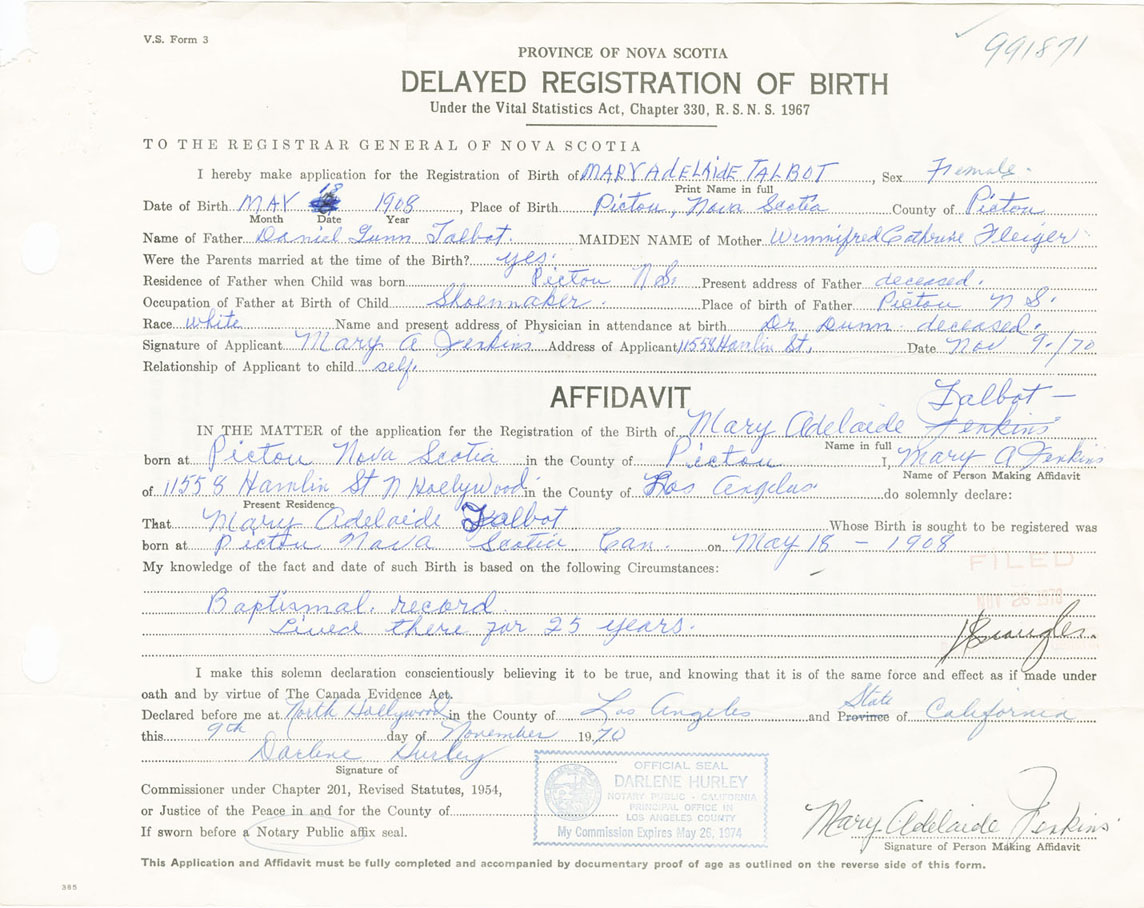 V.S. Form 3
991871
PROVINCE OF NOVA SCOTIA
DELAYED REGISTRATION OF BIRTH
Under the Vital Statistics Act, Chapter 330, R.S.N.S. 1967
TO THE REGISTRAR GENERAL OF NOVA SCOTIA
I hereby make application for the Registration of Birth of MARY AdELAidE TALBOT, Sex Female.
Print Name in full
Date of Birth MAY 18 1908, Place of Birth Pictou, Nova Scotia County of Pictou
Month Date Year
Name of Father Daniel Gunn Talbot. MAIDEN NAME of Mother Winnifred Cathrine Fleiger
Were the Parents married at the time of the Birth? yes.
Residence of Father when Child was born Pictou N.S. Present address of Father deceased.
Occupation of Father at Birth of Child Shoemaker. Place of birth of Father Pictou N.S.
Race white Name and present address of Physician in attendance at birth Dr Dunn - deceased.
Signature of Applicant Mary A Jenkins Address of Applicant 11558 Hamlin St. Date Nov 9./70
Relationship of Applicant to child self.
AFFIDAVIT
Talbot —
IN THE MATTER of the application for the Registration of the Birth of Mary Adelaide Jenkins
Name in full
born at Pictou Nova Scotia in the County of Pictou I, Mary A Jenkins
Name of Person Making Affidavit
of 11558 Hamlin St N Hollywood in the County of Los Angelus do solemnly declare:
Present Residence
That Mary Adelaide Talbot Whose Birth is sought to be registered was
born at Pictou Nova Scotia Can. on May 18 - 1908
My knowledge of the fact and date of such Birth is based on the following Circumstances:
FILED
Baptismal record
26
Lived there for 25 years.
I make this solemn declaration conscientiously believing it to be true, and knowing that it is of the same force and effect as if made under
oath and by virtue of The Canada Evidence Act.
State
Declared before me at North Hollywood in the County of Los Angeles and Province of California
this 9th day of November 1970
Darlene Hurley
Signature of
Commissioner under Chapter 201, Revised Statutes, 1954,
or Justice of the Peace in and for the County of
If sworn before a Notary Public affix seal.
OFFICIAL SEAL
DARLENE HURLEY
NOTARY PUBLIC - CALIFORNIA
PRINCIPAL OFFICE IN
LOS ANGELES COUNTY
My Commission Expires May 26, 1974
Mary Adelaide Jenkins
Signature of Person Making Affidavit
This Application and Affidavit must be fully completed and accompanied by documentary proof of age as outlined on the reverse side of this form.
385